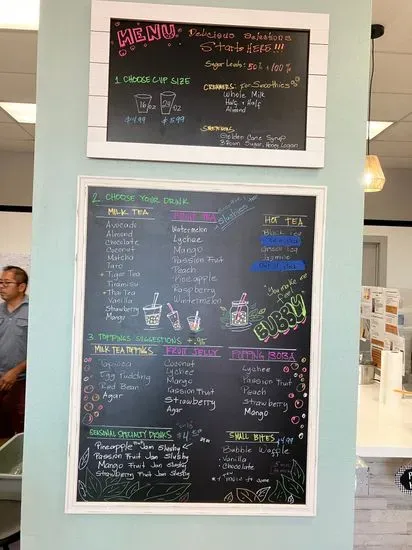 MENU
Delicious Selections
Starts HERE!!!
Sugar Levels: 50% + 100%
1. CHOOSE CUP SIZE
16 oz
24 oz
$4.99
$5.99
CREAMERS: for Smoothies
Whole Milk
Half & Half
Almond
Golden Cane Syrup
Brown Sugar, Honey, Longan
2. CHOOSE YOUR DRINK
MILK TEA
Avocado
Almond
Chocolate
Coconut
Matcha
Taro
Tiger Tea
Tiramisu
Thai Tea
Vanilla
Strawberry
Mango
FRUIT TEA
Slushies
Watermelon
Lychee
Mango
Passion Fruit
Peach
Pineapple
Raspberry
Wintermelon
HOT TEA
Black Tea
Green Tea
Jasmine
You make me
BUBBLY
3. TOPPINGS SUGGESTIONS + .95
MILK TEA TOPPINGS
Tapioca
Egg Pudding
Red Bean
Agar
FRUIT JELLY
Coconut
Lychee
Mango
Passion Fruit
Strawberry
Agar
POPPING BOBA
Lychee
Passion Fruit
Peach
Strawberry
Mango
SEASONAL SPECIALTY DRINKS
Pineapple Jam Slushy
Passion Fruit Jam Slushy
Mango Fruit Jam Slushy
Strawberry Fruit Jam Slushy
SMALL BITES $4.99
Bubble Waffle
• Vanilla
• Chocolate